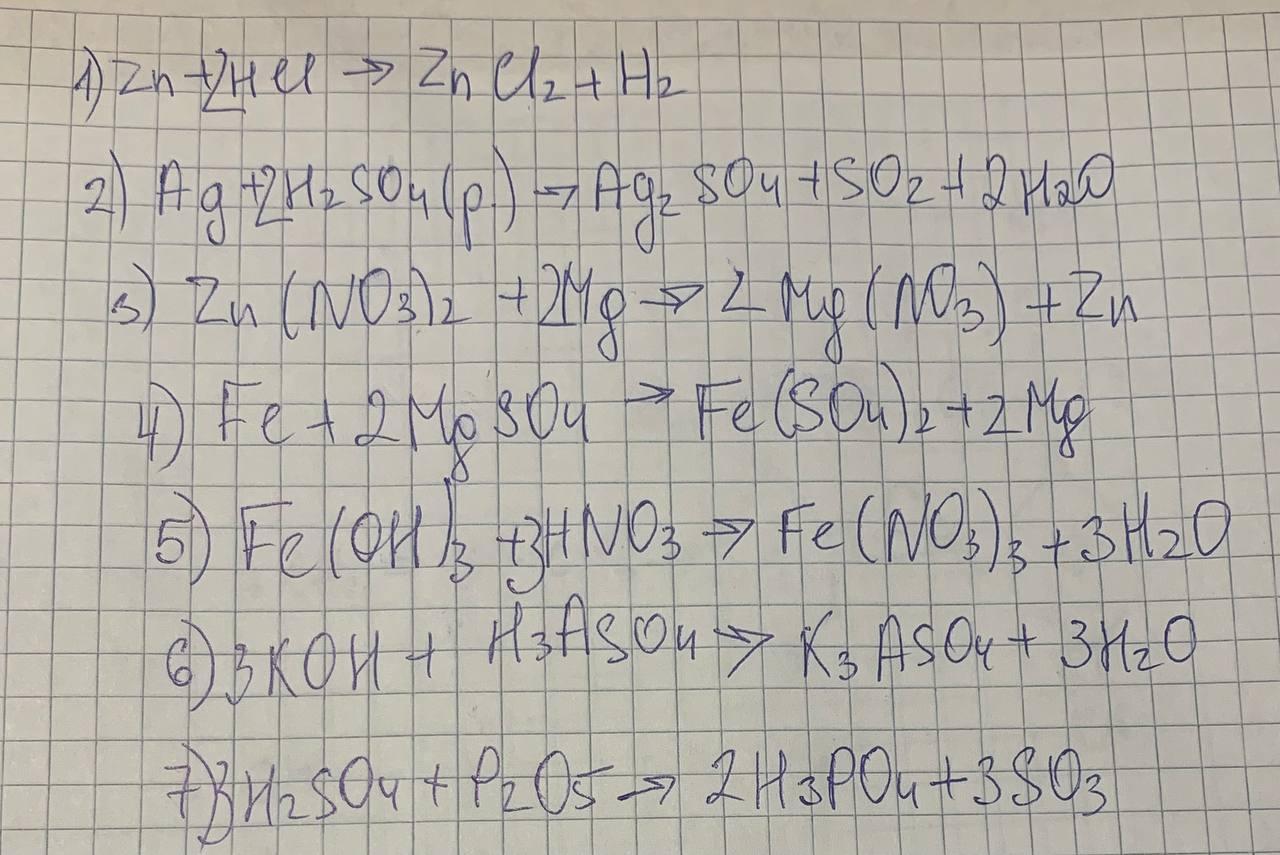 1) Zn + 2HCl → ZnCl2 + H2
2) Ag + 2H2SO4(p.) → Ag2SO4 + SO2 + 2H2O
3) Zn(NO3)2 + 2Mg → 2Mg(NO3) + Zn
4) Fe + 2MgSO4 → Fe(SO4)2 + 2Mg
5) Fe(OH)3 + 3HNO3 → Fe(NO3)3 + 3H2O
6) 3KOH + H3ASO4 → K3ASO4 + 3H2O
7) 3H2SO4 + P2O5 → 2H3PO4 + 3SO3